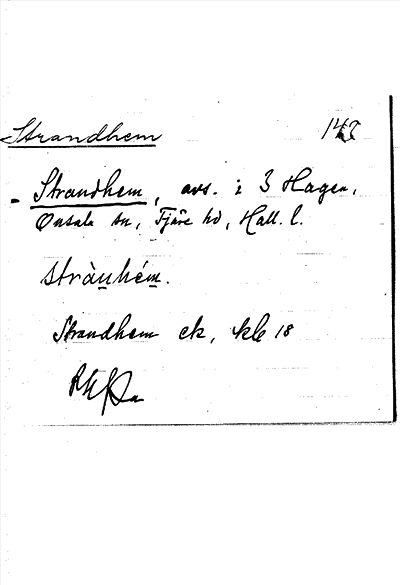 Strandhem 147
- Strandhem, avs. i 3 Hagen,
Onsala sn, Fjäre hd, Hall. l.
strànhém.
Strandhem ek,